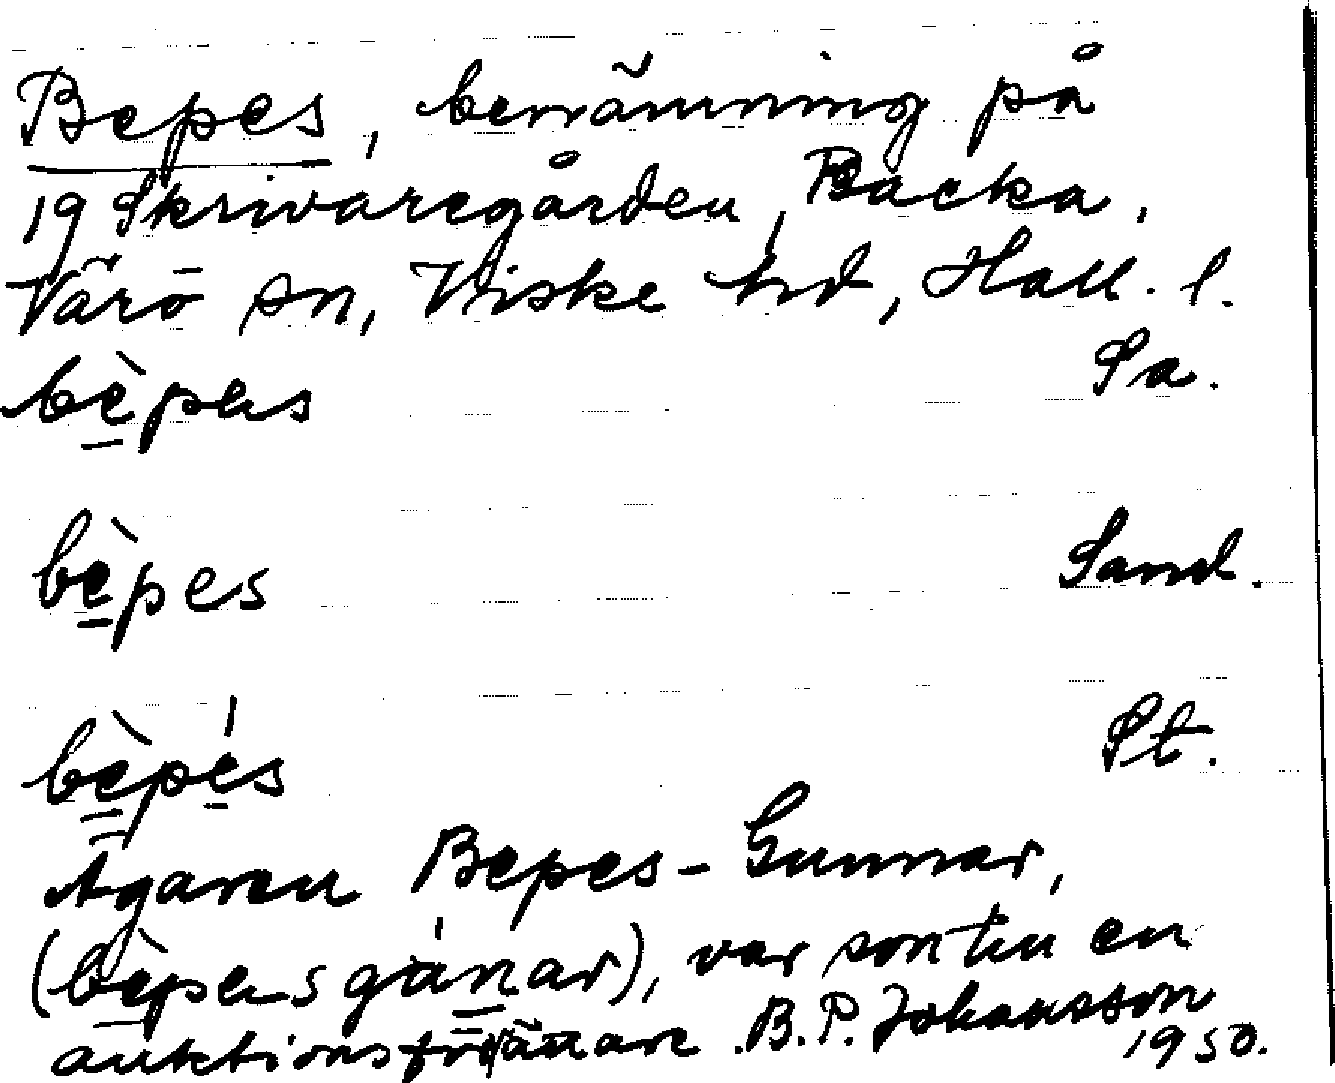 Bepes, benämning på
19 Skrivaregården, Backa,
Värö sn, Viske hd, Hall. l.
bèpes Sa.
bèpes Sand.
bèpés St.
Ägaren Bepes-Gunnar,
(bèpes gánar), var son till en
auktionsförrättare B.P. Johansson
1950.